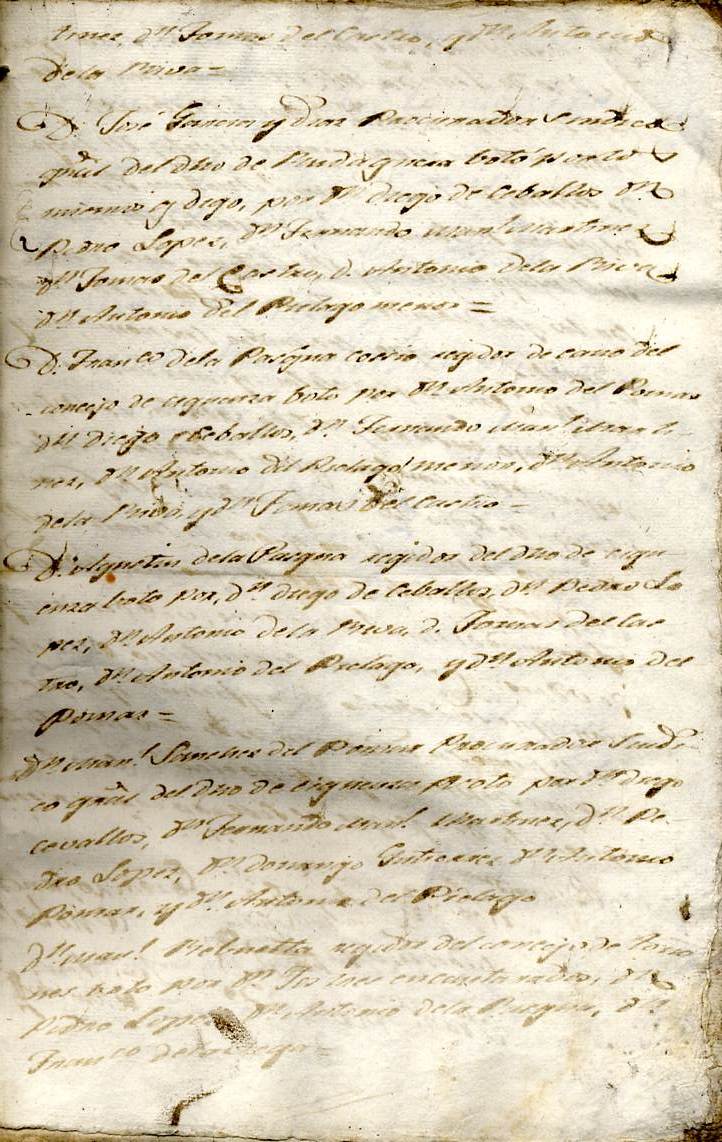 tinez, Dn Tomas del Castro, y Dn Antonio
de la Riva =
D. José Garcia y Diaz Procurador Sindico
gral del dho de Rudaguera botó por lo
mismo y digo, por Dn Diego de Ceballos Dn
Pedro Lopez, Dn Fernando Manl Martinez
Dn Tomas del Castro, D. Antonio de la Riva
Dn Antonio del Pielago menor =
D. Franco de la Pasqua cosio regidor de cano del
concejo de ciguenza boto por Dn Antonio del Pomar
Dn Diego Ceballos, Dn Fernando Manl Marti-
nez, Dn Antonio del Pielago menor, Dn Antonio
de la Riva, y Dn Tomas del Castro =
D. Agustin de la Pasqua regidor del dho de cigu
enza boto por, Dn Diego de Ceballos, Dn Pedro Lo
pez, Dn Antonio de la Riva, D. Tomas del Cas
tro, Dn Antonio del Pielago, y Dn Antonio del
Pomar =
Dn Manl Sanchez del Pomar Procurador Sindi
co gral del dho de ciguenza boto por Dn Diego
cevallos, Dn Fernando Manl Martinez, Dn Pe-
dro Lopez, Dn Domingo Gutierrez Dn Antonio
Pomar, y Dn Antonio del Pielago
Dn Manl regidor del concejo de Torio
nes boto por Dn los tres encantarados, Dn
Pedro Lopez, Dn Antonio de la Pasqua, Dn
Franco de